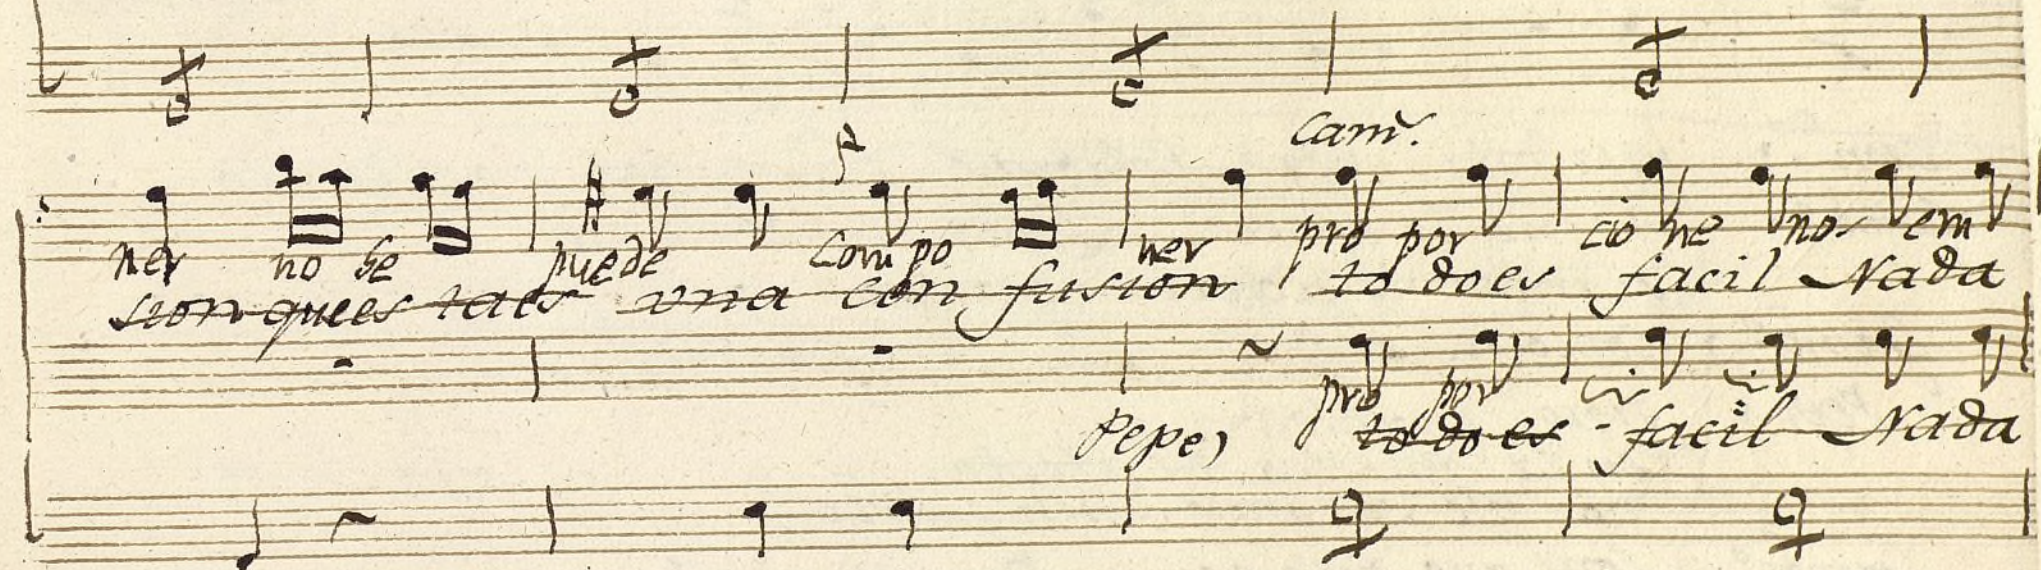 Cam.
ner no se puede compo ner pro por cio ne nos em
sion quees taes vna con fusion to does facil Nada
pro por
Pepe) to do es - facil Nada